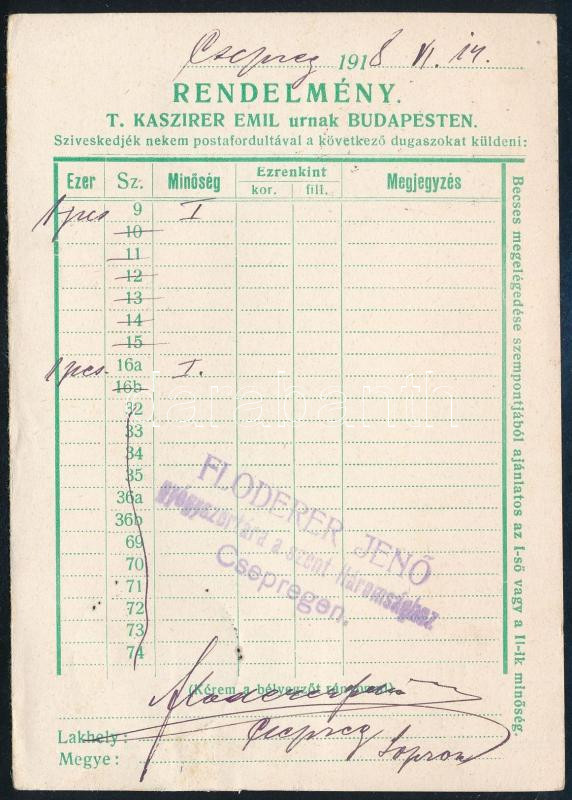 Csepreg 1918 VI. 14.
RENDELMÉNY.
T. KASZIRER EMIL urnak BUDAPESTEN.
Sziveskedjék nekem postafordultával a következő dugaszokat küldeni:
Ezer Sz. Minőség Ezrenkint kor. fill. Megjegyzés
1 pcs 9 I
10
11
12
13
14
15
1 pcs. 16a I.
16b
32
33
34
35
36a
36b
69
70
71
72
73
74
Becses megelégedése szempontjából ajánlatos az I-ső vagy a II-ik minőség
darabanth
FLODERER JENŐ
gyógyszertára a szent Háromsághoz
Csepregen.
(Kérem a bélyegzőt rányomni)
Floderer Jenő
Lakhely: Csepreg
Megye: Sopron